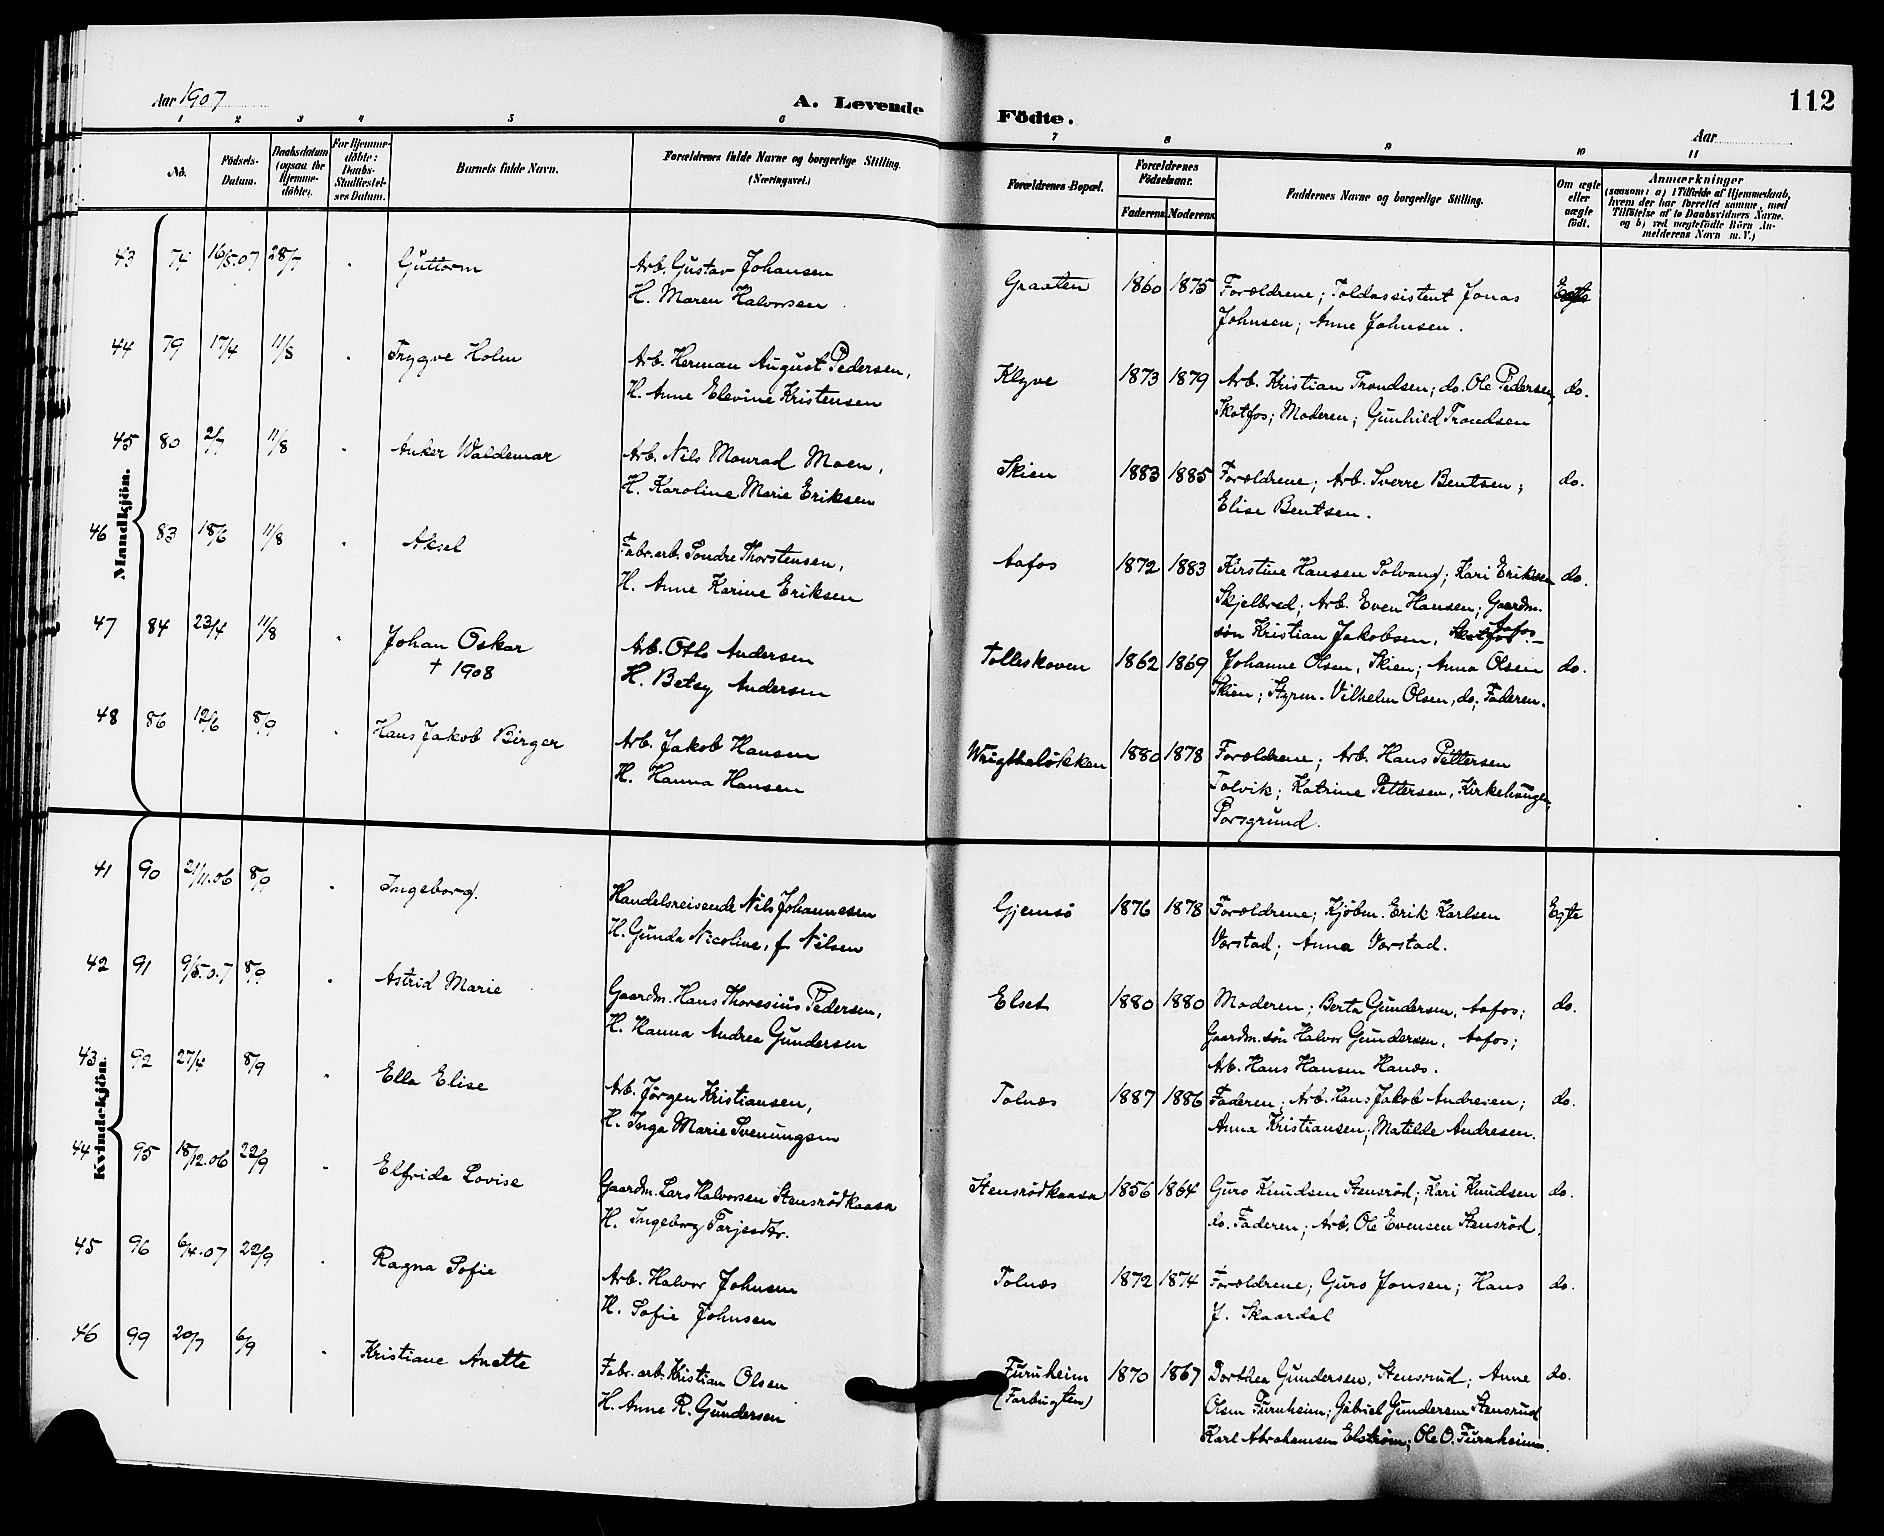 Aar 1907
A. Levende
Födte.
112
Aar
1 2 3 4 5 6 7 8 9 10 11
No.
Födsels-Datum.
Daabsdatum (ogsaa for Hjemme-döbte).
For Hjemme-döbte: Daabs-Stadfæstel-ses Datum.
Barnets fulde Navn.
Forældrenes fulde Navne og borgerlige Stilling. (Næringsvei.)
Forældrenes Bopæl.
Forældrenes Födselsaar.
Faderens Moderens
Faddernes Navne og borgerlige Stilling.
Om ægte eller uægte født.
Anmærkninger
(saasom: a) i Tilfælde af Hjemmedaab,
hvem der har forrettet samme, med
Tilföielse af to Daabsvidners Navne.
og b) ved uægtefödte Börn An-
melderens Navn m. V.)
Mandkjön.
43 74 16/5.07 28/7 Guttorm Arb. Gustav Johansen Graaten 1860 1875 Forældrene; Toldassistent Jonas Egte
H. Maren Halvorsen Johnsen; Anne Johnsen.
44 79 17/4 11/8 Trygve Holm Arb. Herman August Pedersen, Klyve 1873 1879 Arb. Kristian Trondsen; do. Ole Pedersen, do.
H. Anne Elevine Kristensen Skotfos; Moderen; Gunhild Trondsen
45 80 2/7 11/8 Anker Waldemar Arb. Nils Monrad Moen, Skien 1883 1885 Forældrene; Arb. Sverre Bentsen; do.
H. Karoline Marie Eriksen Elise Bentsen.
46 83 18/6 11/8 Aksel Fabr.arb. Sondre Thorstensen, Aafos 1872 1883 Kirstine Hansen Solvang; Kari Eriksen do.
H. Anne Karine Eriksen Skjelbred; Arb. Even Hansen; Gaardm.
søn Kristian Jakobsen, Aafos
47 84 23/4 11/8 Johan Oskar Arb. Otto Andersen Tolleskoven 1862 1869 Johanne Olsen, Skien; Anna Olsen do.
† 1908 H. Betsy Andersen Skien; Styrm. Vilhelm Olsen, do; Faderen.
48 86 12/6 8/9 Hans Jakob Birger Arb. Jakob Hansen Wrigthsløkken 1880 1878 Forældrene; Arb. Hans Pettersen
H. Hanna Hansen Tolvik; Katrine Pettersen, Kirkehaugen,
Porsgrund.
Kvindekjön.
41 90 21/11.06 8/9 Ingeborg. Handelsreisende Nils Johannesen Gjemsø 1876 1878 Forældrene; Kjøbm. Erik Karlsen Egte
H. Gunda Nicoline, f. Nilsen Varstad; Anna Varstad.
42 91 9/5.07 8/9 Astrid Marie Gaardm. Hans Thoresius Pedersen, Elset 1880 1880 Moderen; Berta Gundersen, Aafos; do.
H. Hanna Andrea Gundersen Gaardm.søn Halvor Gundersen, Aafos;
Arb. Hans Hansen Hanæs.
43 92 27/4 8/9 Ella Elise Arb. Jørgen Kristiansen, Tolnæs 1887 1886 Faderen; Arb. Hans Jakob Andresen; do.
H. Inga Marie Svenungsen Anna Kristiansen; Matilde Andresen.
44 95 18/12.06 22/9 Elfrida Lovise Gaardm. Lars Halvorsen Stensrødkaasa Stensrødkaasa 1856 1864 Guro Knudsen Stensrød; Kari Knudsen do.
H. Ingeborg Tarjesdtr. do. Faderen; Arb. Ole Evensen Stensrød.
45 96 6/4.07 22/9 Ragna Sofie Arb. Halvor Johnsen Tolnæs 1872 1874 Forældrene; Guro Jonsen; Hans do.
H. Sofie Johnsen J. Skaardal
46 99 20/7 6/9 Kristiane Anette Fabr. arb. Kristian Olsen Furuheim 1870 1867 Dorthea Gundersen, Stensrud; Anne do.
H. Anne R. Gundersen (Farbugten) Olsen Furuheim; Gabriel Gundersen Stensrud
Karl Abrahamsen Elstrøm; Ole O. Furuheim.